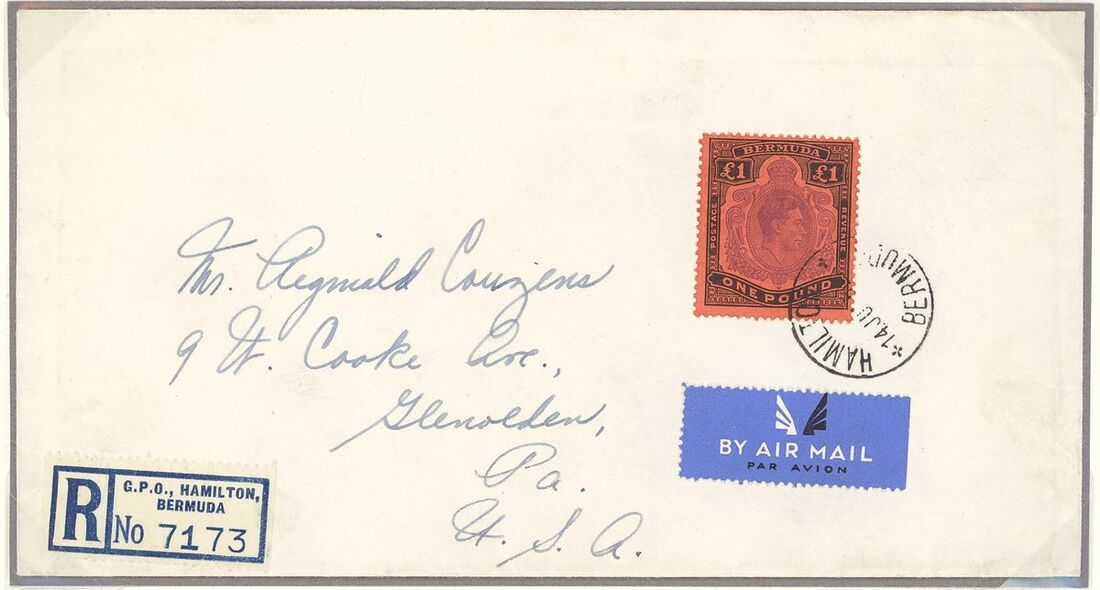 BERMUDA
£1 £1
POSTAGE
REVENUE
ONE POUND
HAMILTON
BERMUDA
Mr. Reginald Couzens
9 W. Cooke Ave.,
Glenolden,
Pa.
U. S. A.
BY AIR MAIL
PAR AVION
R
G.P.O., HAMILTON,
BERMUDA
No 7173